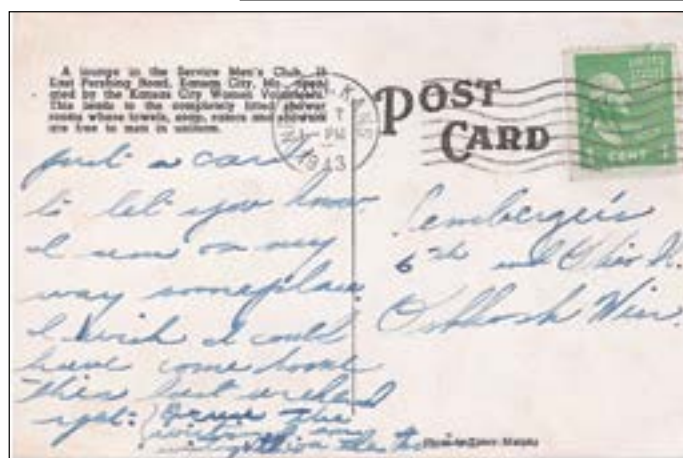 A lounge in the Service Men's Club, 15
East Pershing Road, Kansas City, Mo., oper-
ated by the Kansas City Women Volunteers.
This leads to the completely tiled shower
rooms where towels, soap, razors and showers
are free to men in uniform.
POST
CARD
7
PM
1943
UNITED STATES
1 CENT 1
just a card
to let you know
I am on my
way someplace
I wish I could
have come home
this last weekend
yet: Excuse the
writing I am
writing this on the
Lemberger's
6th and Ohio St.
Oshkosh Wis.